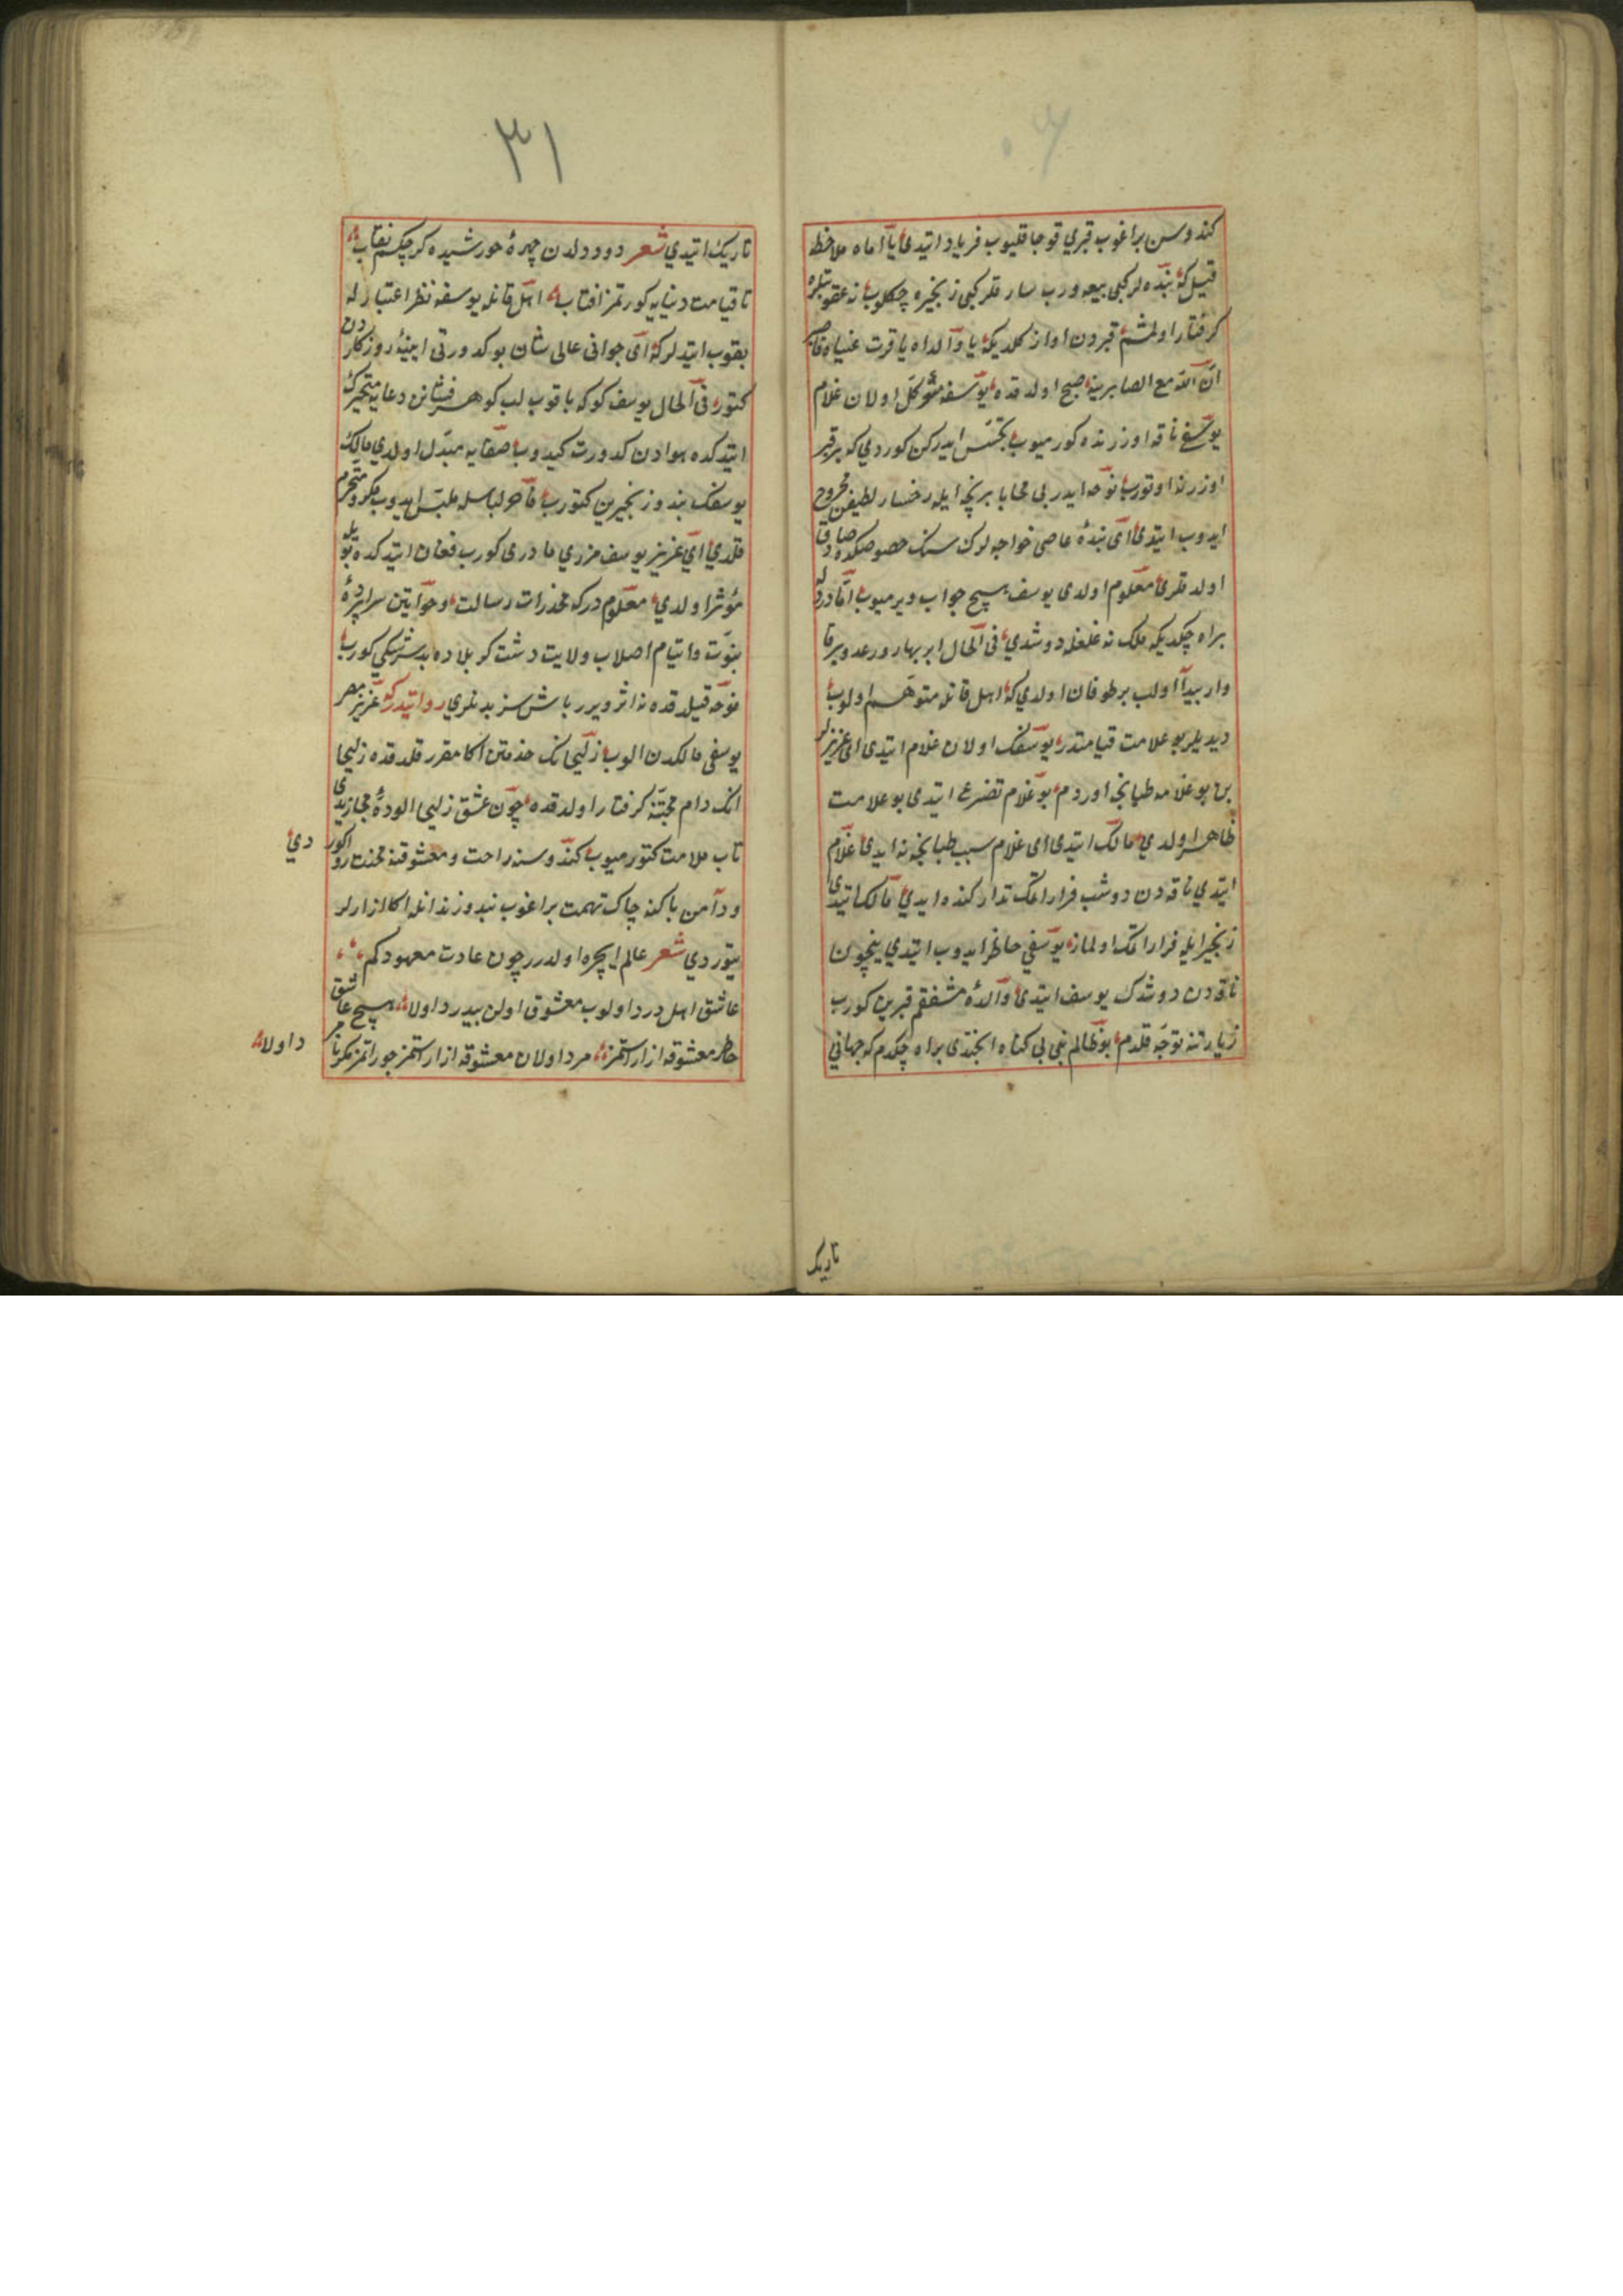 كندوسن براغوب قبري قوجاقليوب فرياد ايتدى يا اماه ملاحظه
قيل كه بنده لر كبى بيعه ورب سارقلر كبى زنجيره چكلوب نه عقوبتلره
كرفتار اولمشم قبردن اواز كلديكه يا ولداه يا قرت عيناه فاصبر
ان الله مع الصابرين صبح اولدقده يوسفه موكل اولان غلام
يوسفى ناقه اوزرنده كورميوب تجسس ايدركن كوردي كه بر قبر
اوزرنده اوتورب نوحه ايدر بى محابا بر پنجه ايله رخسار لطيفن مجروح
ايدوب ايتدى اى بنده عاصى خواجه لرك سنك خصوصكده صادق
اولدقلرى معلوم اولدى يوسف هيچ جواب ويرميوب اما دردله
بر اه چكديكه ملك نه غلغله دوشدي فى الحال ابر بهار ورعد وبرق
وار پيدا اولب بر طوفان اولدي كه اهل قافله متوهم اولوب
ديديلر بو علامت قيامتدر يوسفك اولان غلام ايتدى اى عزيزلر
بن بو غلامه طپانجه اوردم بو غلام تضرع ايتدى بو علامت
ظاهر اولدي مالك ايتدى اى غلام سبب طپانچه نه ايدى غلام
ايتدي ناقه دن دوشب فرار اتمك تداركنده ايدي مالك ايتدى
زنجير ايله فرار اتمك اولماز يوسفي حاظر ايدوب ايتدي نيچون
ناقه دن دوشدك يوسف ايتدى والده مشفقم قبرين كورب
زيارتنه توجه قلدم بو ظالم بنى بى كناه انجتدى بر اه چكدم كه جهانى
تاريك
٣١
تاريك ايتدي شعر دود دلدن چهره خورشيده كر چكسم نقاب
تا قيامت دنيايه كورتمز افتاب اهل قافله يوسفه نظر اعتبار له
بقوب ايتدلر كه اى جوان عالى شان بو كدورتى ايينه روزكاردن
كتور فى الحال يوسف كوكه باقوب لب كوهر فشانن دعايه متحرك
ايتدكده هوادن كدورت كيدوب صفايه مبدل اولدي مالك
يوسفك بند وزنجيرين كتورب فاخر لباسله ملبس ايدوب مكرم ومحترم
قلدي اى عزيز يوسف مزري مادرى كورب فغان ايتدكده بويله
مؤثر اولدي معلوم دركه مخدرات رسالت وخواتين سراپرده
نبوت وايتام اصلاب ولايت دشت كربلاده بدر كورب
نوحه قيلدقده نه اثر ويرر باش سز بدنلري روايتدركه عزيز مصر
يوسفى مالكدن الوب زليخانك خدمتن اكا مقرر قلدقده زليخا
انك دام محبتنه كرفتار اولدقده چون عشق زليخا الوده مجازيدى
تاب ملامت كتورميوب كندوسنه راحت ومعشوقنه محنت روا كوردي
ودامن پاكنه چاك تهمت براغوب بند وزندانله اكا ازارلر
يتوردي شعر عالم ايچره اولدر چون عادت معهود كم
عاشق اهل درد اولوب معشوق اولن بيدرد اولا هيچ عاشق
خاطر معشوقه ازار استمز مرد اولان معشوقه ازار استمز جور اتمز مكر نامرد اولا